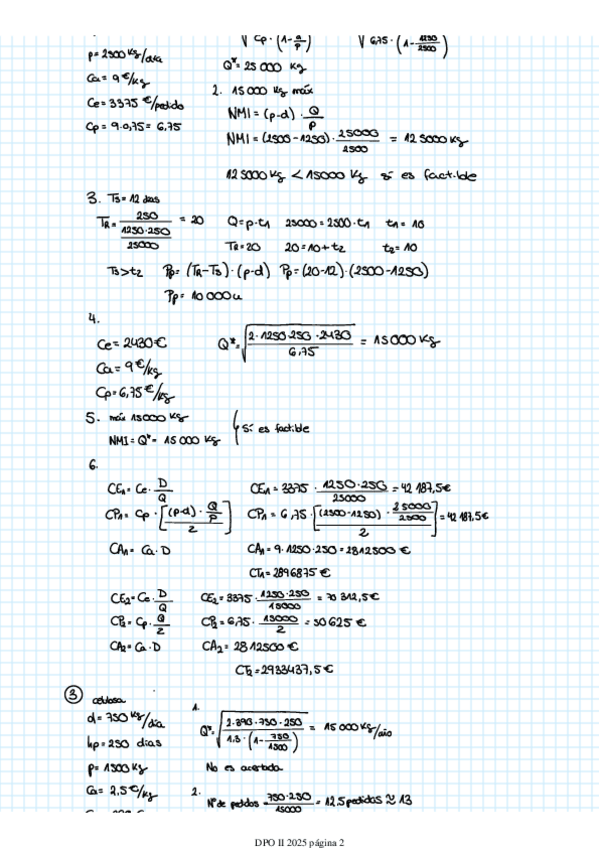 √ Cp·(1-d/p) √ 6,75·(1-1250/2500)
p = 2500 kg/día
Q* = 25 000 kg
Ca = 9 €/kg
2. 15 000 kg máx
Ce = 3375 €/pedido
NMI = (p-d) · Q/p
Cp = 9·0,75 = 6,75
NMI = (2500-1250) · 25000/2500 = 12 5000 kg
12 5000 kg < 15000 kg sí es factible
3. Ts = 12 días
TR = 250/(1250·250/25000) = 20 Q = p·t1 25000 = 2500·t1 t1 = 10
TR = 20 20 = 10 + t2 t2 = 10
Ts > t2 Pp = (TR-Ts)·(p-d) Pp = (20-12)·(2500-1250)
Pp = 10 000 u
4.
Ce = 2430 € Q* = √(2·1250·250·2430/6,75) = 15 000 kg
Ca = 9 €/kg
Cp = 6,75 €/kg
5. máx 15000 kg
NMI = Q* = 15 000 kg
Sí es factible
6.
CE1 = Ce · D/Q CE1 = 3375 · 1250·250/25000 = 42 187,5 €
CP1 = Cp · [(p-d)·Q/p / 2] CP1 = 6,75 · [(2500-1250)·25000/2500 / 2] = 42 187,5 €
CA1 = Ca·D CA1 = 9·1250·250 = 2812500 €
CT1 = 2896875 €
CE2 = Ce · D/Q CE2 = 3375 · 1250·250/15000 = 70 312,5 €
CP2 = Cp · Q/2 CP2 = 6,75 · 15000/2 = 50 625 €
CA2 = Ca·D CA2 = 2812500 €
CT2 = 2933437,5 €
3 celulosa
1.
d = 750 kg/día
Q* = √(2·890·750·250/1,5·(1-750/1500)) = 15 000 kg/año
hp = 250 días
p = 1500 kg
No es acertada
Ca = 2,5 €/kg
2.
Nº de pedidos = 750·250/15000 = 12,5 pedidos ≈ 13
DPO II 2025 página 2